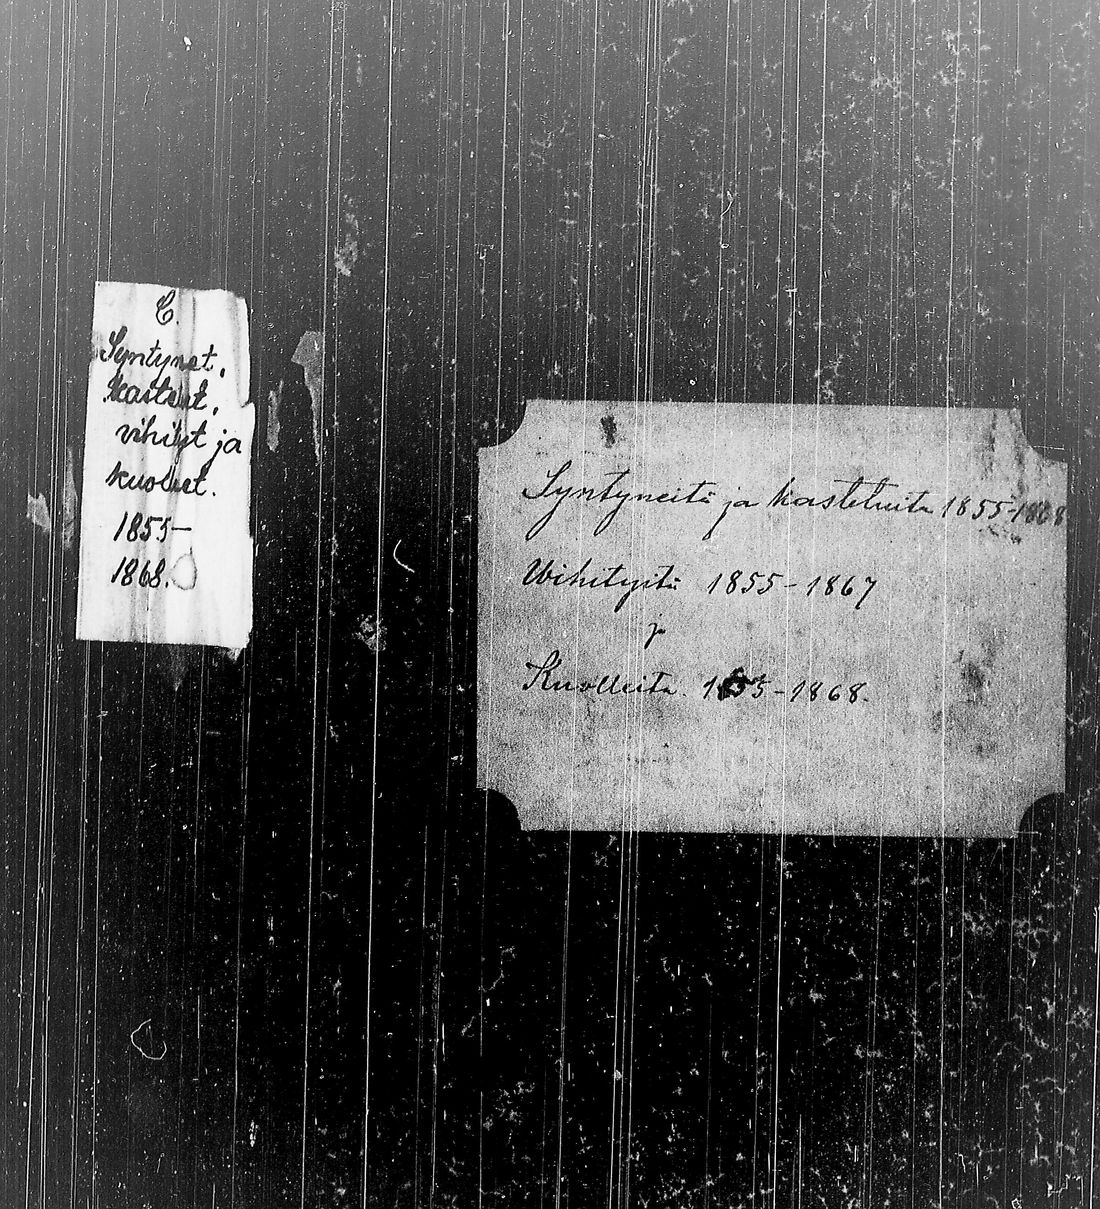 C.
Syntynet,
kastetut,
vihityt ja
kuolleet.
1855-
1868.
Syntyneitä ja kastetuita 1855-1868
Wihityitä 1855-1867
ja
Kuolleita. 1855-1868.